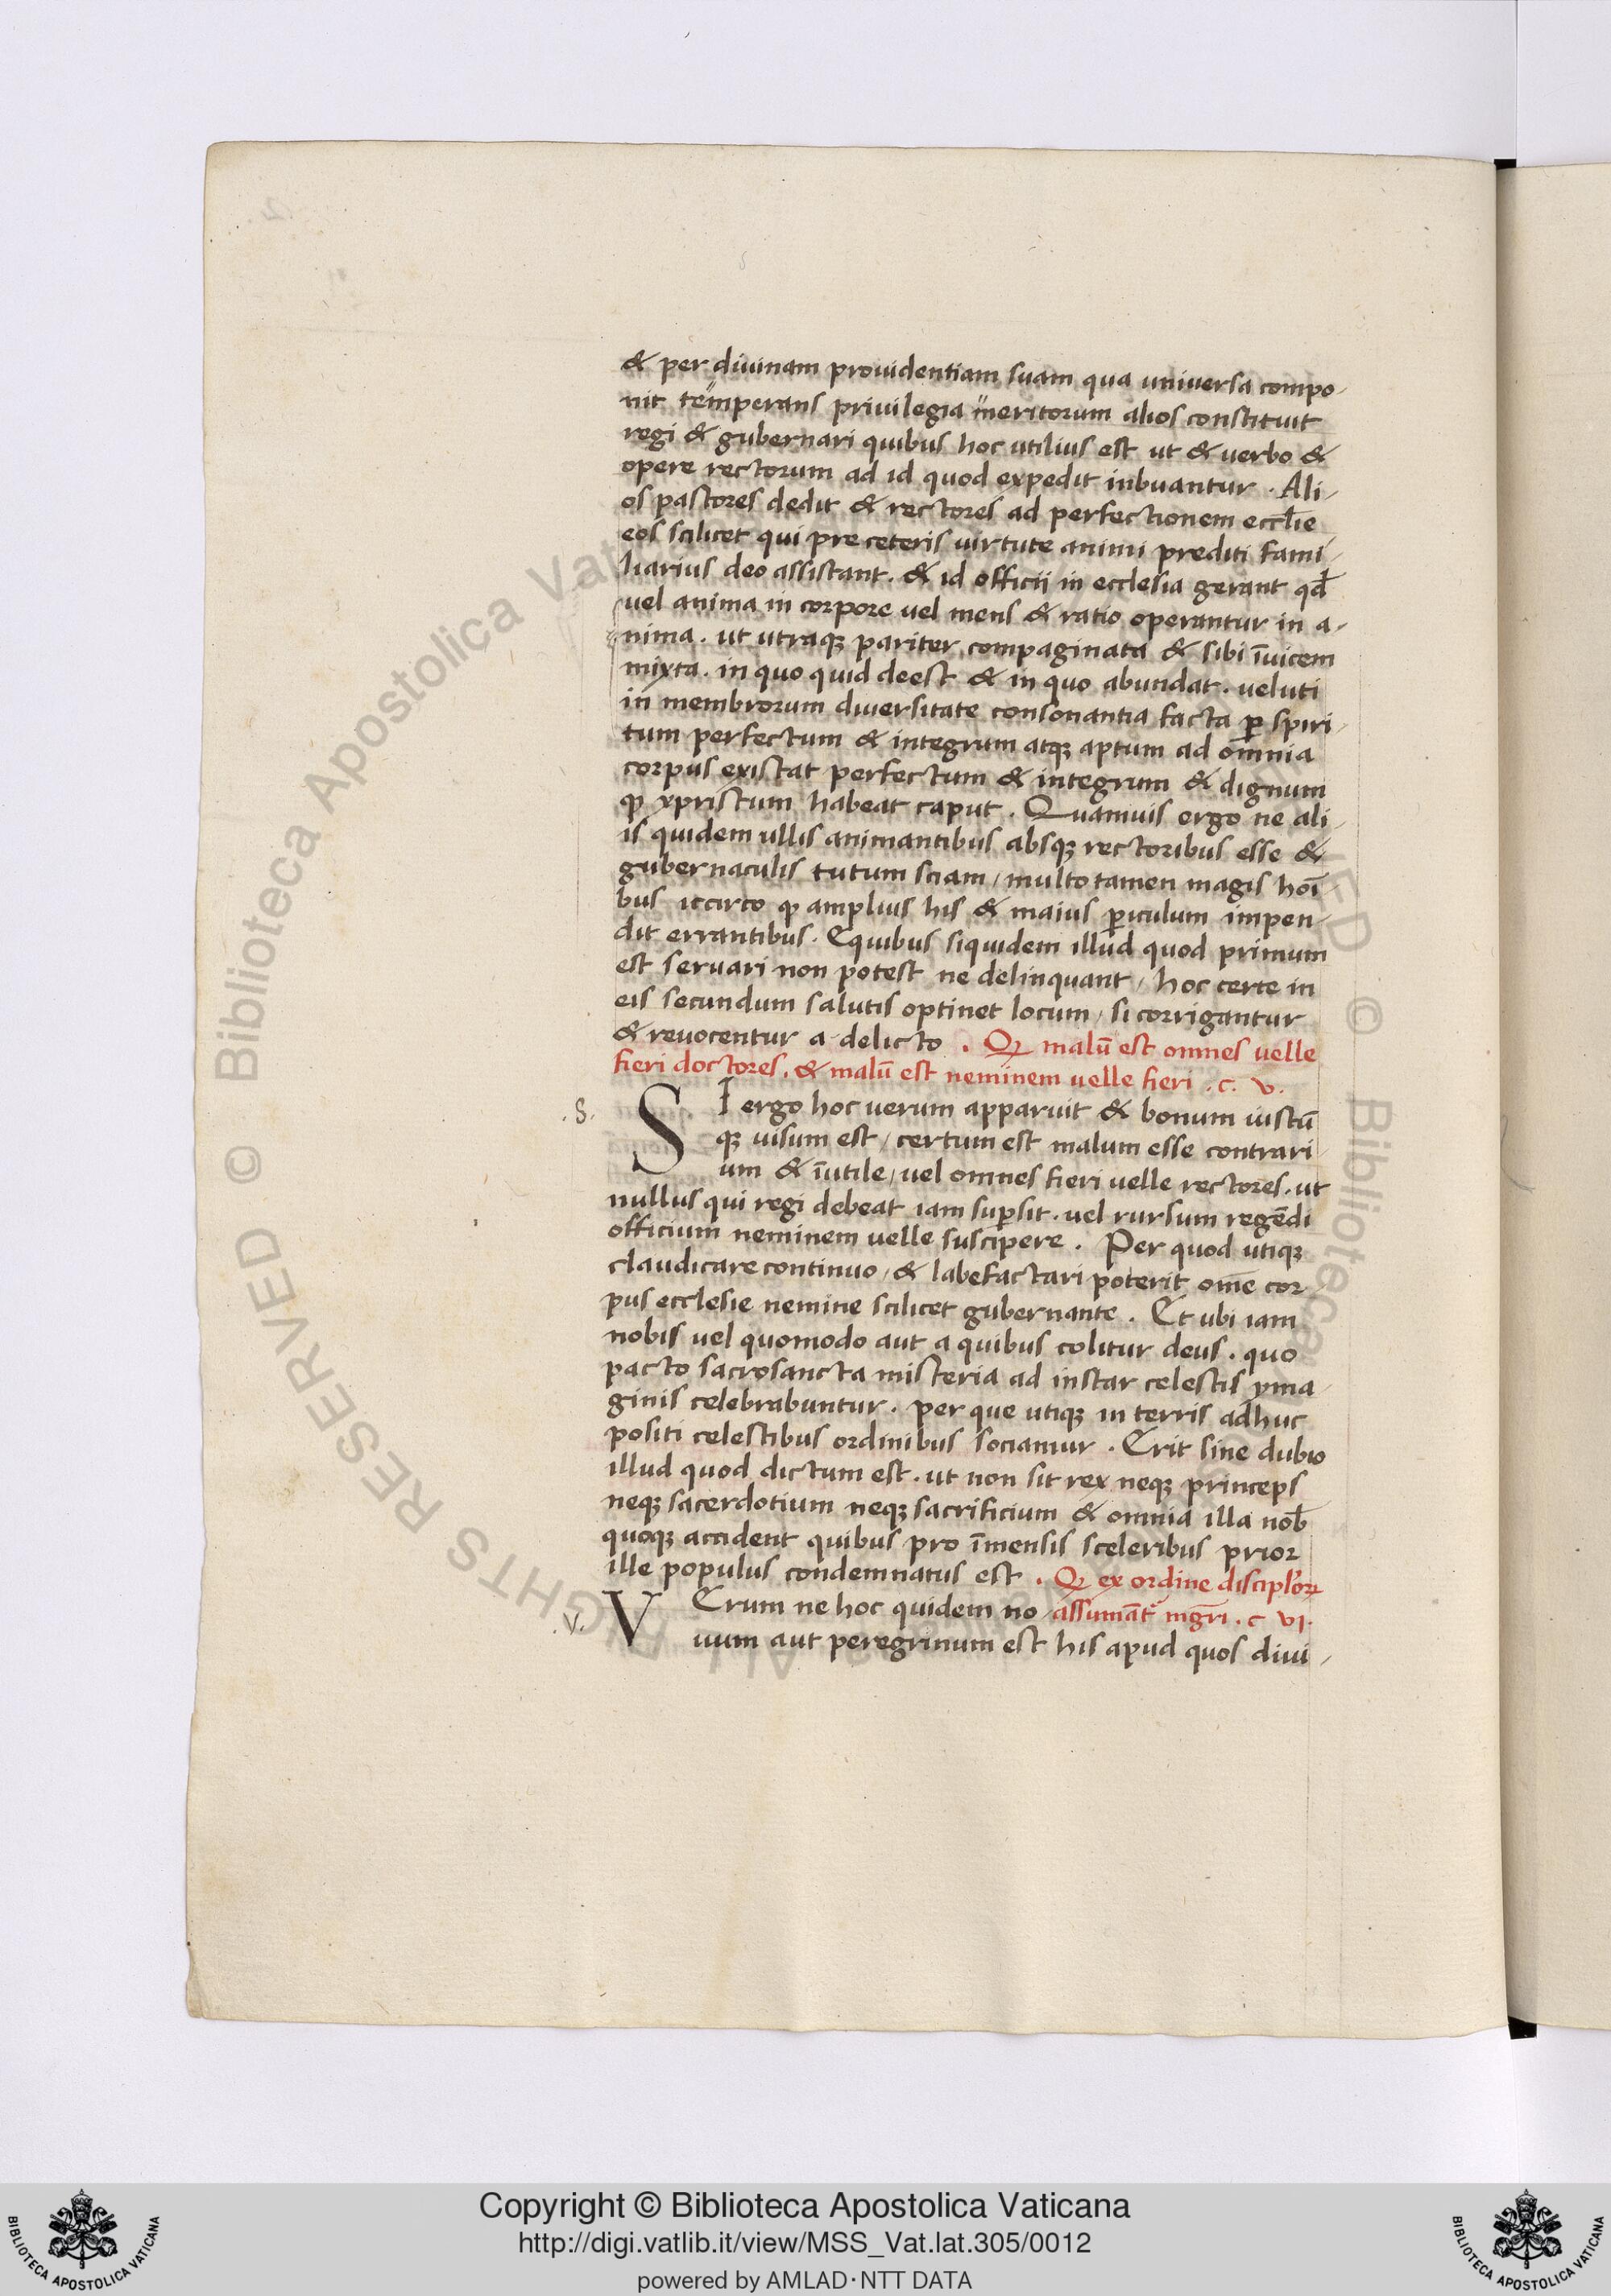 & per diuinam prouidentiam suam qua universa compo-
nit temperans privilegia meritorum alios constituit
regi & gubernari quibus hoc utilius est ut & uerbo &
opere rectorum ad id quod expedit inbuantur . Ali-
os pastores dedit & rectores ad perfectionem eccl̄ie
eos scilicet qui pre ceteris uirtute animi prediti fami-
liarius deo assistant. & id officii in ecclesia gerant qd̄
vel anima in corpore vel mens & ratio operantur in a-
nima. ut utraqꝫ pariter compaginata & sibi īuicem
mixta. in quo quid deest & in quo abundat. veluti
in membrorum diversitate consonantia facta ꝑ spiri-
tum perfectum & integrum atqꝫ aptum ad omnia
corpus existat perfectum & integrum & dignum
ꝙ xpristum habeat caput . Quamuis ergo ne ali-
is quidem ullis animantibus absqꝫ rectoribus esse &
gubernaculis tutum sciam / multo tamen magis hoī-
bus iccirco ꝙ amplius his & maius ꝑiculum impen-
dit errantibus. Equibus siquidem illud quod primum
est seruari non potest ne delinquant / hoc certe in
eis secundum salutis optinet locum / si corrigantur
& reuocentur a delicto . Ꝙ malū est omnes uelle
fieri doctores. & malū est neminem uelle fieri . c. v.
.s. SI ergo hoc uerum apparuit & bonum iustū
qꝫ uisum est / certum est malum esse contrari-
um & īutile / vel omnes fieri uelle rectores. ut
nullus qui regi debeat iam suꝑsit. vel rursum regēdi
officium neminem uelle suscipere . Per quod utiqꝫ
claudicare continuo / & labefactari poterit om̄e cor-
pus ecclesie nemine scilicet gubernante . Et ubi iam
nobis vel quomodo aut a quibus colitur deus. quo
pacto sacrosancta misteria ad instar celestis yma-
ginis celebrabuntur. per que utiqꝫ in terris adhuc
positi celestibus ordinibus sociamur . Erit sine dubio
illud quod dictum est. ut non sit rex neqꝫ princeps
neqꝫ sacerdotium neqꝫ sacrificium & omnia illa nob̄
quoqꝫ accident quibus pro īmensis sceleribus prior
ille populus condemnatus est . Ꝙ ex ordine discipl'oꝝ
.v. VErum ne hoc quidem no- assumāt mḡri . c vi.
uum aut peregrinum est his apud quos diui-
Copyright © Biblioteca Apostolica Vaticana
http://digi.vatlib.it/view/MSS_Vat.lat.305/0012
powered by AMLAD·NTT DATA
BIBLIOTECA APOSTOLICA VATICANA
BIBLIOTECA APOSTOLICA VATICANA